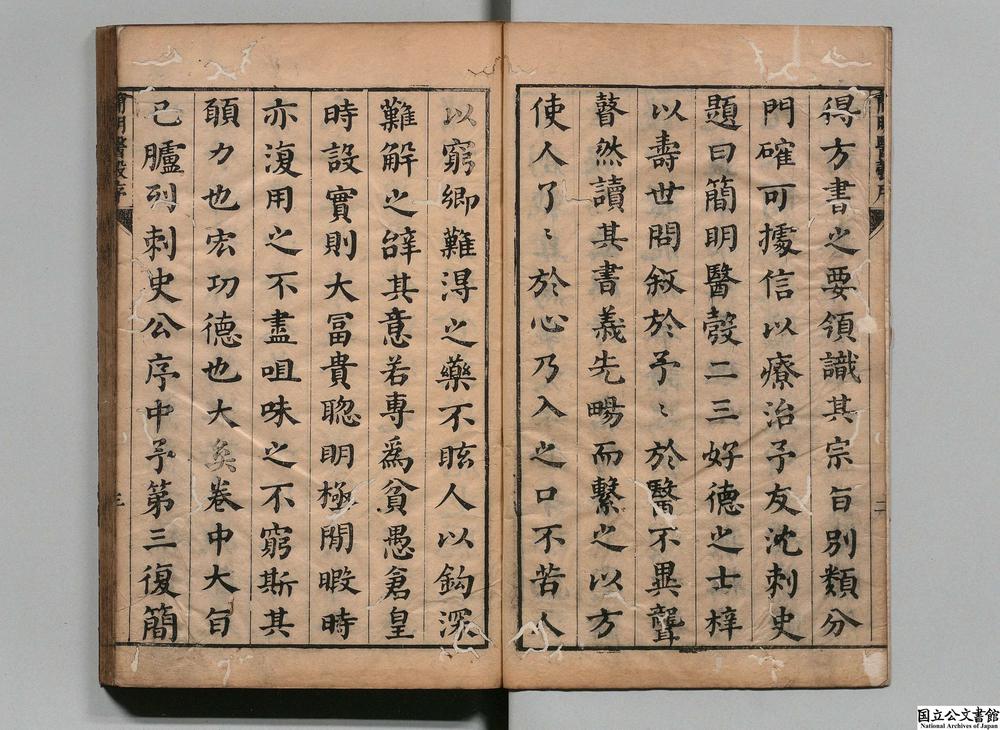 得方書之要領識其宗旨別類分
門確可據信以療治予友沈刺史
題曰簡明醫彀二三好德之士梓
以壽世問敘於予〻於醫不異聾
瞽然讀其書義先暢而繫之以方
使人了〻於心乃入之口不苦人
以窮鄉難淂之藥不眩人以鈎深
難解之辭其意若專爲貧愚倉皇
時設實則大冨貴聦明極閒暇時
亦復用之不盡咀味之不窮斯其
願力也宏功德也大矣卷中大旨
已臚列刺史公序中予第三復簡
簡明醫彀序
二
簡明醫彀序
三
国立公文書館
National Archives of Japan